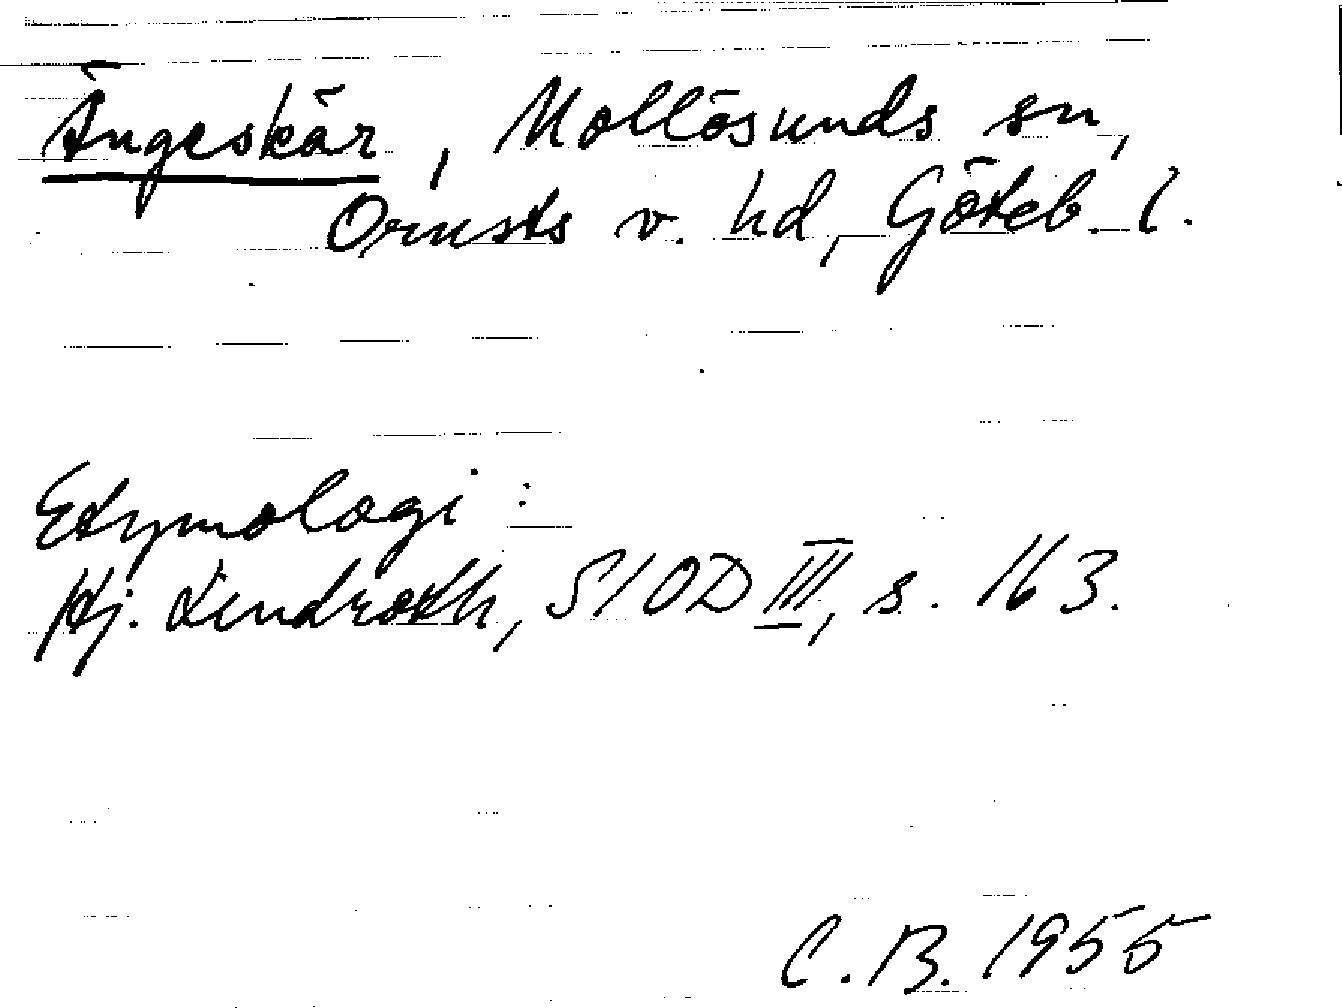 Ängeskär, Mollösunds sn,
Orusts v. hd, Göteb. l.
Etymologi:
Hj. Lindroth, SIOD III, s. 163.
C. B. 1955